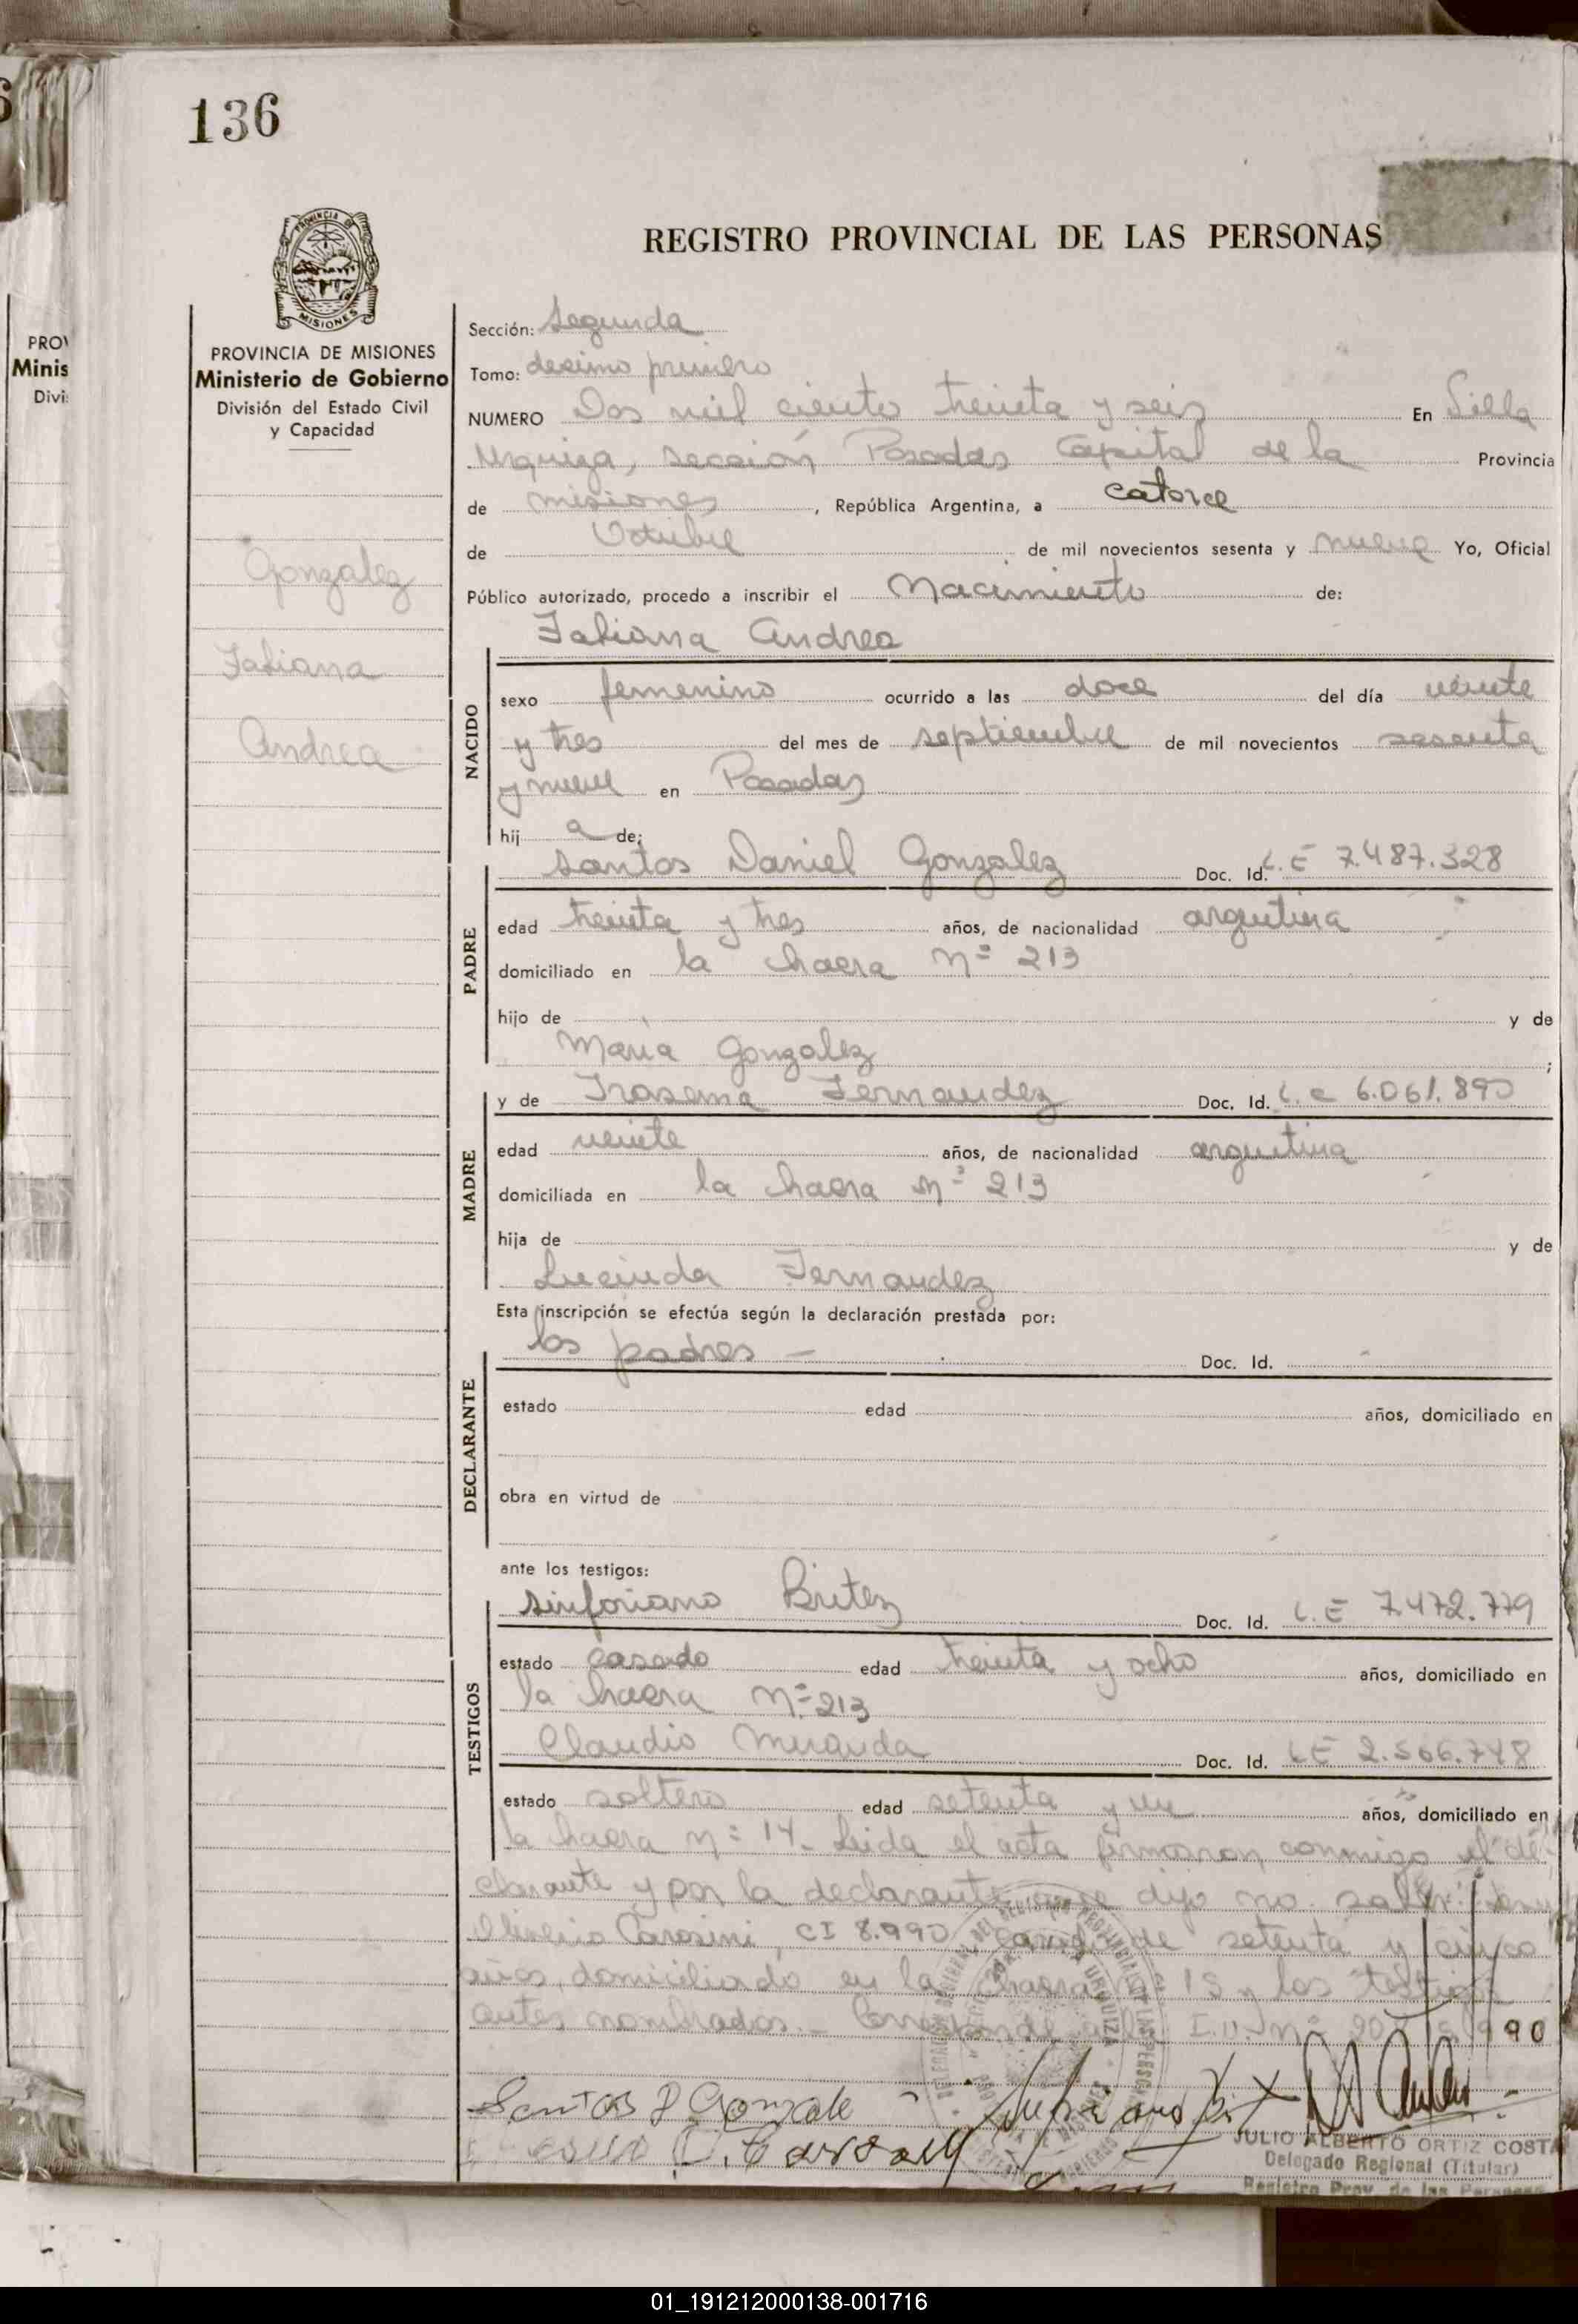 136
REGISTRO PROVINCIAL DE LAS PERSONAS
PROVINCIA DE MISIONES
PROVINCIA DE MISIONES
Ministerio de Gobierno
División del Estado Civil
y Capacidad
Gonzalez
Fabiana
Andrea
Sección: Segunda
Tomo: decimo primero
NUMERO Dos mil ciento treinta y seis En Villa
Urquiza, sección Posadas Capital de la Provincia
de misiones, República Argentina, a catorce
de Octubre de mil novecientos sesenta y nueve Yo, Oficial
Público autorizado, procedo a inscribir el Nacimiento de:
Fabiana Andrea
NACIDO
sexo femenino ocurrido a las doce del día veinte
y tres del mes de septiembre de mil novecientos sesenta
y nueve en Posadas
hij a de;
PADRE
santos Daniel Gonzalez Doc. Id. L.E 7.487.328
edad treinta y tres años, de nacionalidad argentina
domiciliado en la chacra Nº 213
hijo de y de
Maria Gonzalez ;
MADRE
y de Irasema Fernandez Doc. Id. L.C 6.061.890
edad veinte años, de nacionalidad argentina
domiciliada en la chacra nº 213
hija de y de
Lucinda Fernandez
Esta inscripción se efectúa según la declaración prestada por:
DECLARANTE
los padres — Doc. Id.
estado edad años, domiciliado en
obra en virtud de
ante los testigos:
TESTIGOS
sinforiano Britez Doc. Id. L.E 7.472.779
estado casado edad treinta y ocho años, domiciliado en
la chacra Nº 213
Claudio Miranda Doc. Id. LE 2.566.748
estado soltero edad setenta y un años, domiciliado en
la chacra nº 14_ Leida el acta firmaron conmigo el de-
clarante y por la declarante que dijo no saber
Carosini, CI 8.990, casado de setenta y cinco
años, domiciliado en la chacra 15 y los testigos
antes nombrados.-
Santos D Gonzale
JULIO ALBERTO ORTIZ COSTA
Delegado Regional (Titular)
Registro Prov. de las Personas
01_191212000138-001716